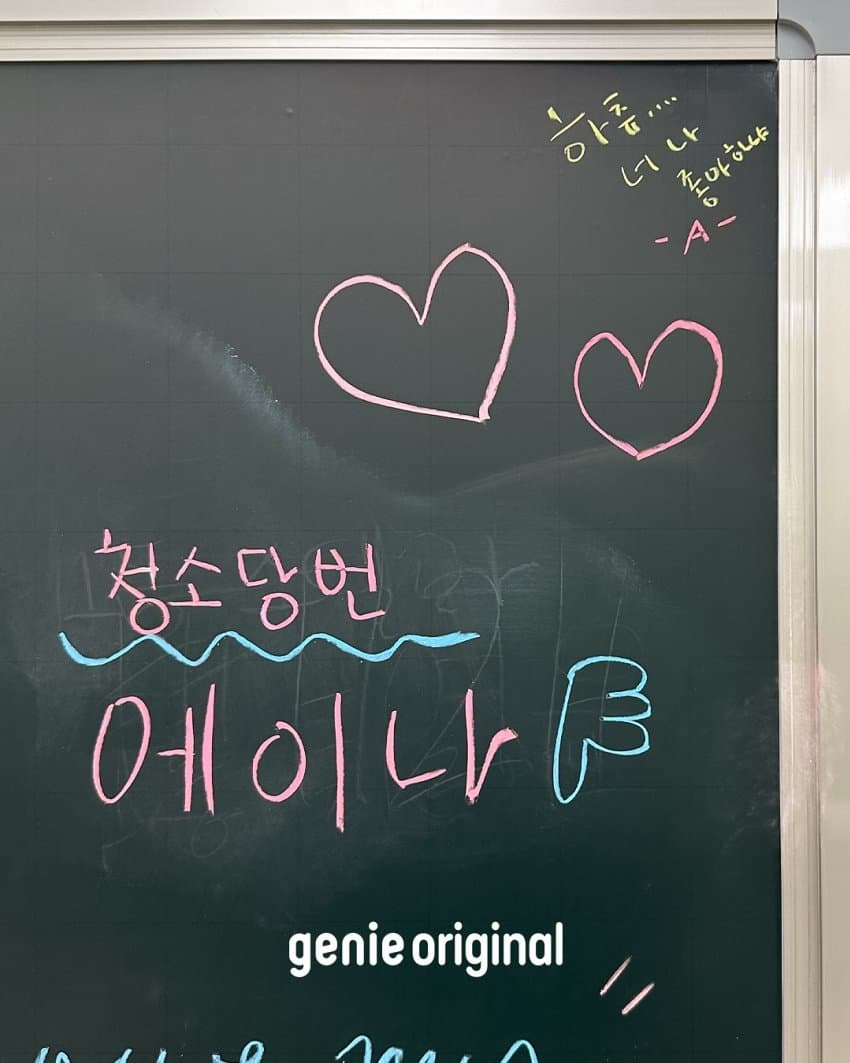 하츄....
너 나
좋아하냐
-A-
청소당번
에이나
genie original